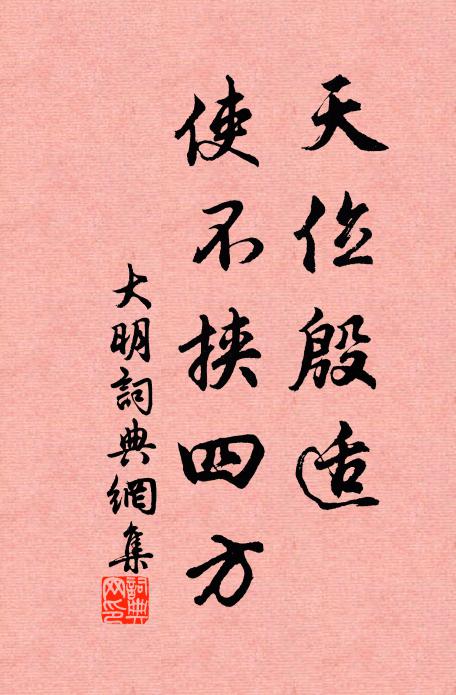 天位殷适
使不挟四方
大明詞典網集
詞典網印